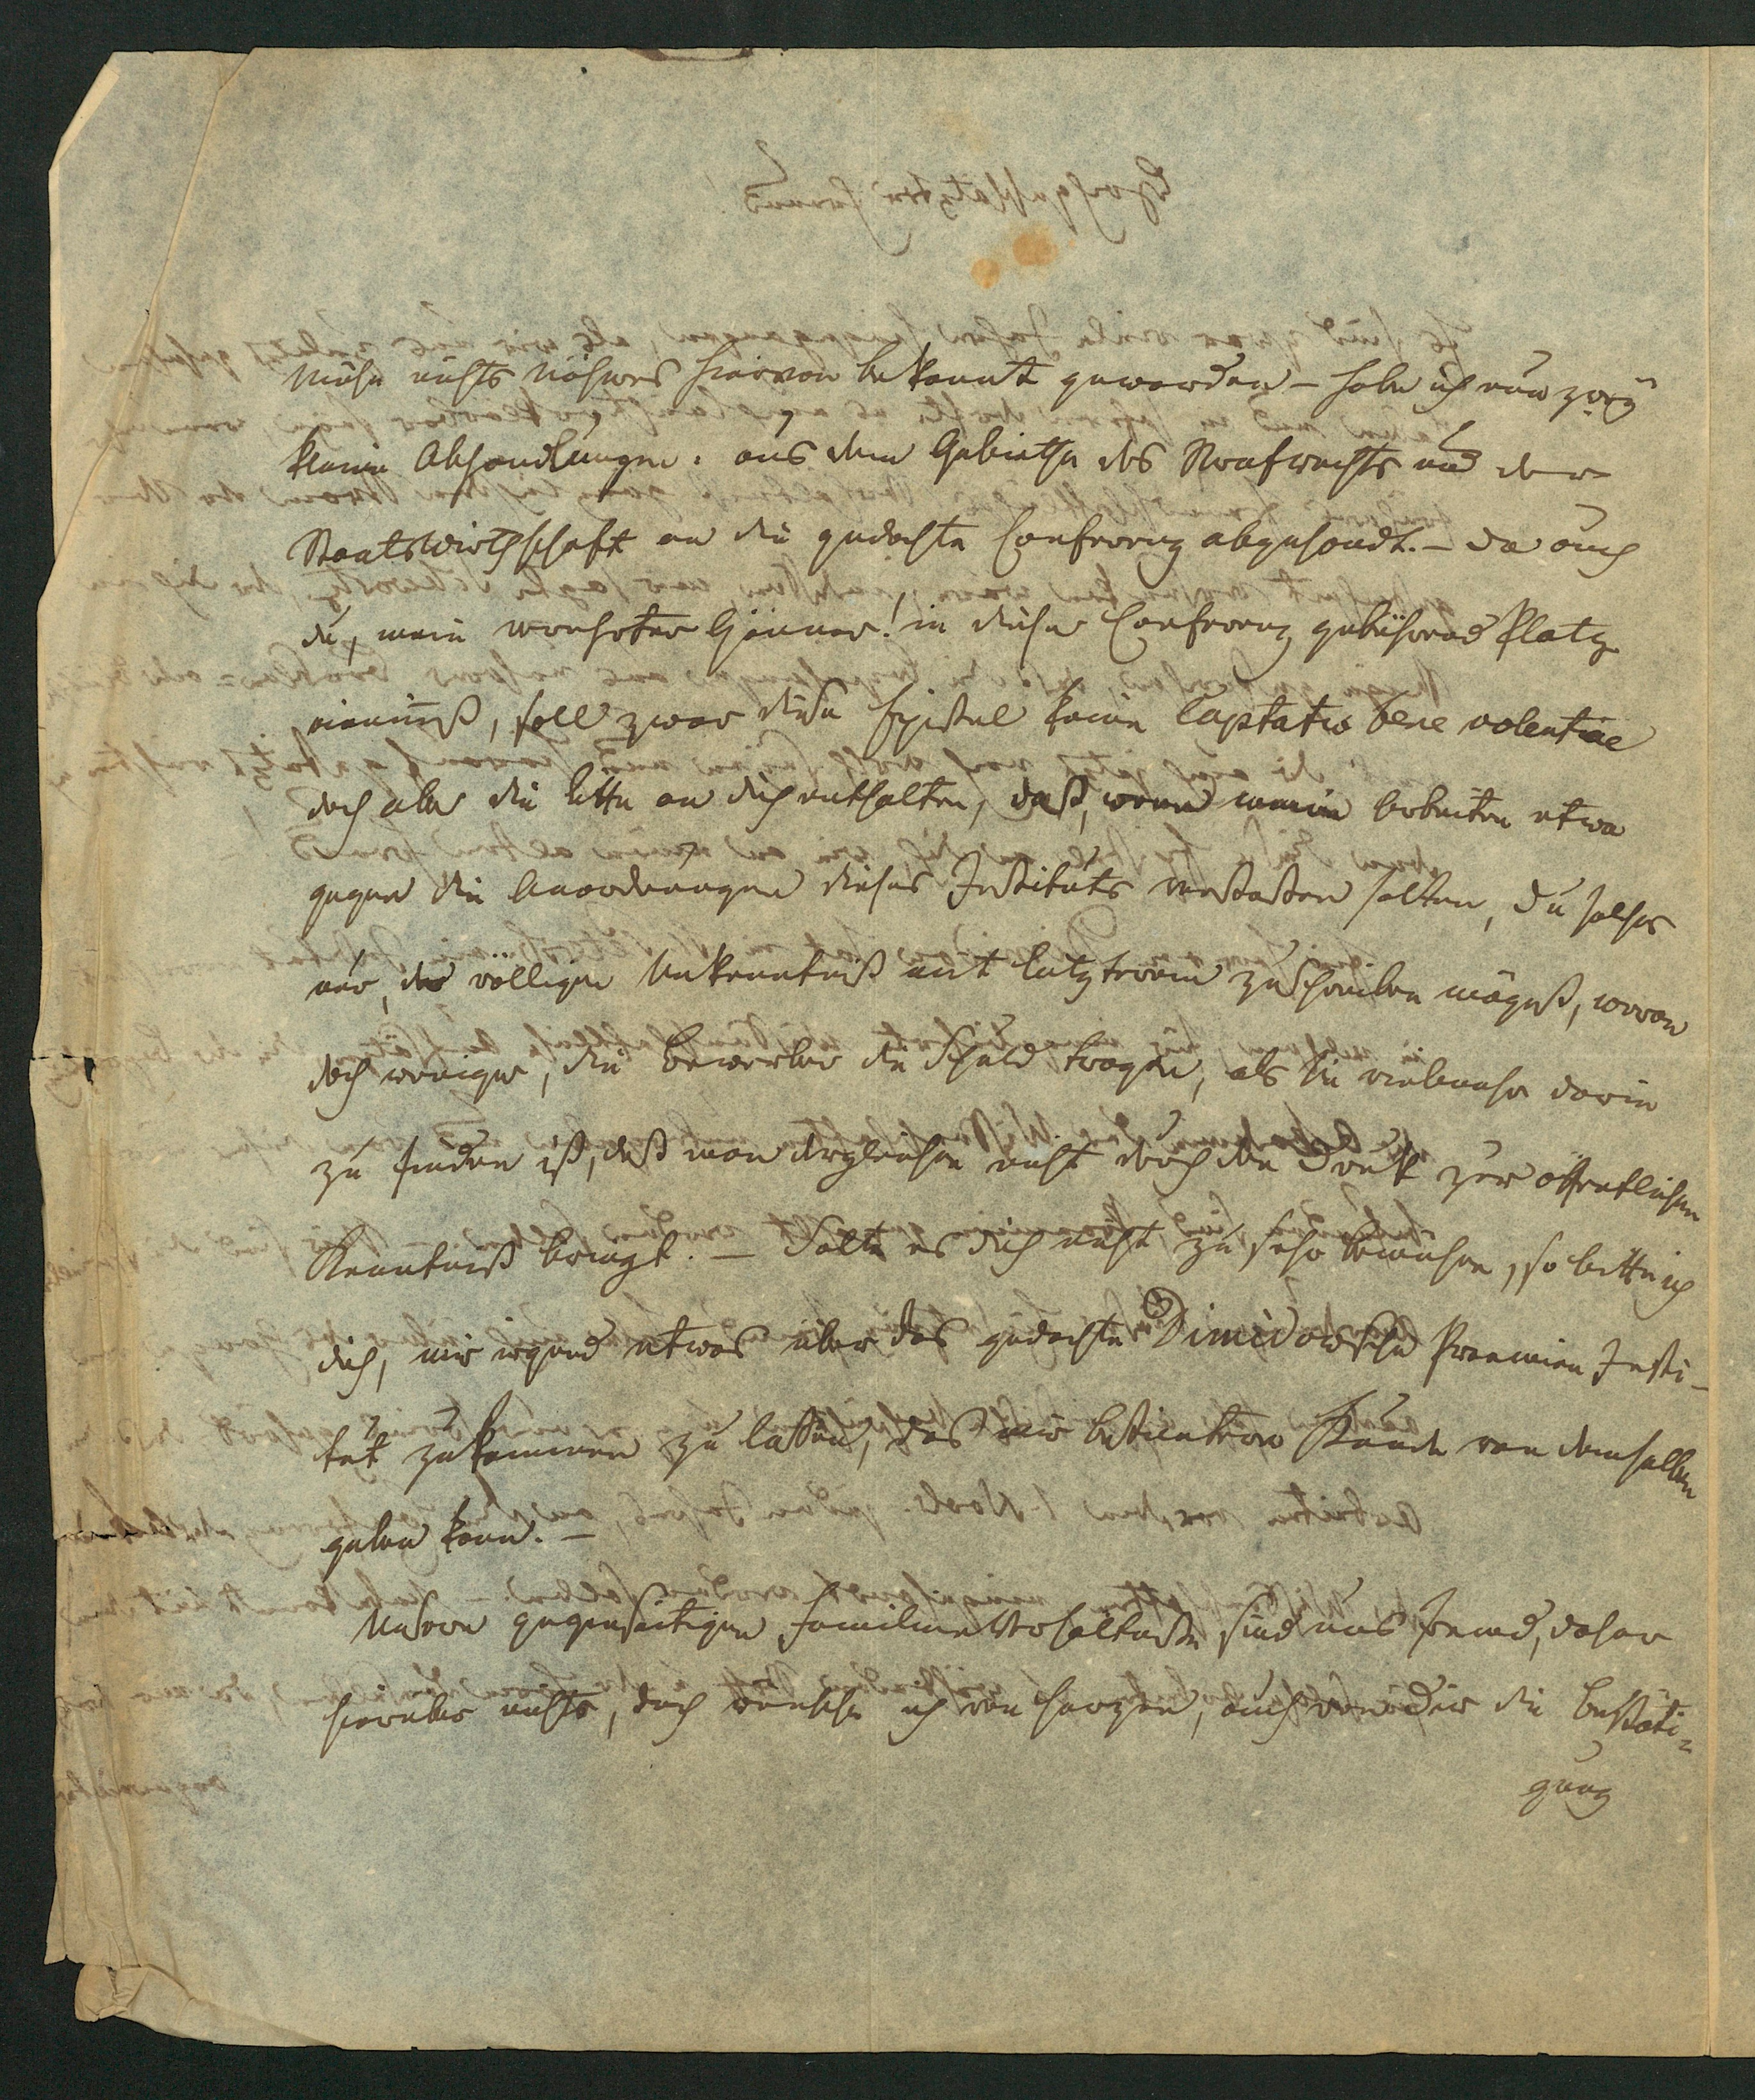 Mühe nichts Näheres hiervon bekannt geworden – habe ich nun zwey
kleine Abhandlungen: aus dem Gebiethe des Strafrechts und der
Staatswirthschaft an die gedachte Conferenz abgesandt. – Da auch
du, mein werthster Gönner! in dieser Conferenz gebührend Platz
nimmst, soll zwar diese Epistel keine Captatio bene volentiae
doch aber die Bitte an dich enthalten, daß, wenn meine Arbeiten etwa
gegen die Anordnungen dieses Instituts verstoßen sollten, du solches
nur, der völligen Unkenntniß mit letzterem zuschreiben mögest, woran
doch weniger, die Bewerber die Schuld tragen, als sie vielmehr darin
zu finden ist, daß man dergleichen nicht durch den Druck zur öffentlichen
Kenntniß bringt. – Sollte es dich nicht zu sehr bemühen, so bitte ich
dich, mir irgend etwas über das gedachte Dimidowsche Praemien Insti-
tut zukommen zu lassen, das mir bestimtere Kunde von demselben
geben kann. –
Unsere gegenseitigen Familien Verhältnisse sind uns fremd, daher
hierüber nichts, doch wünsche ich von Herzen, auch von dir die Bestäti-
gung